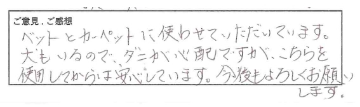 ご意見、ご感想
ベットとカーペットに使わせていただいています。
犬もいるので、ダニが心配ですが、こちらを
使用してからは安心しています。今後もよろしくお願い
します。